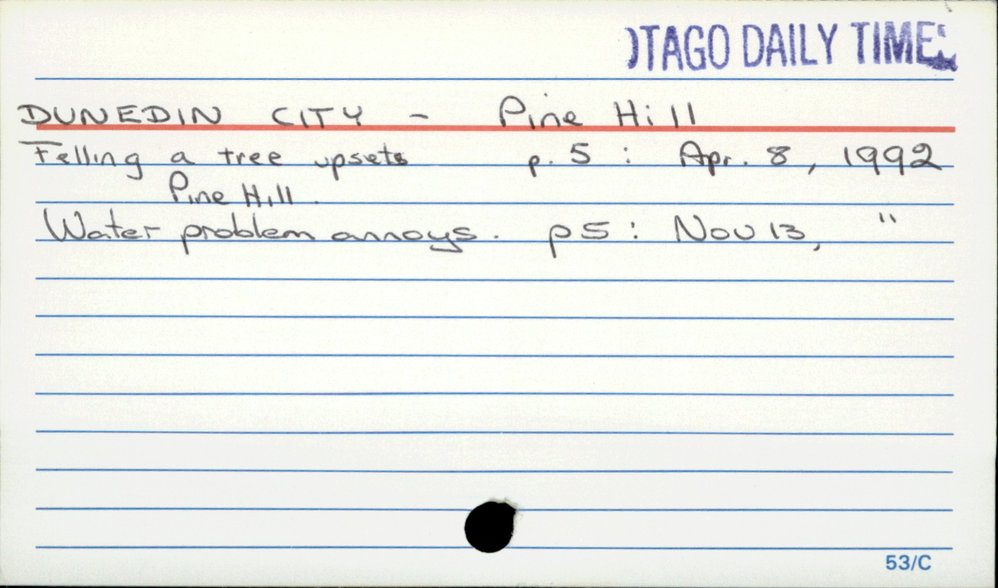 OTAGO DAILY TIMES
DUNEDIN CITY - Pine Hill
Felling a tree upsets p. 5 : Apr. 8, 1992
Pine Hill.
Water problem annoys. p5 : Nov 13, "
53/C